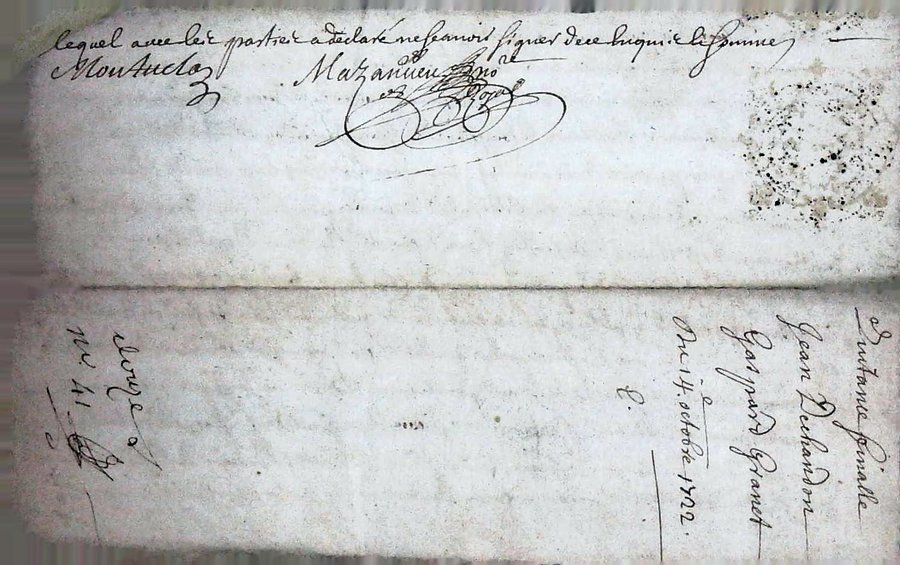 lequel avec les parties a déclaré ne scavoir signer de ce enquis et somme
Montucla
Mazauven no.re
Royal
Quitance finalle
Jean Dechandon
Gaspard Granet
Du 14.e octobre 1722.
C.
douze
n.o 41